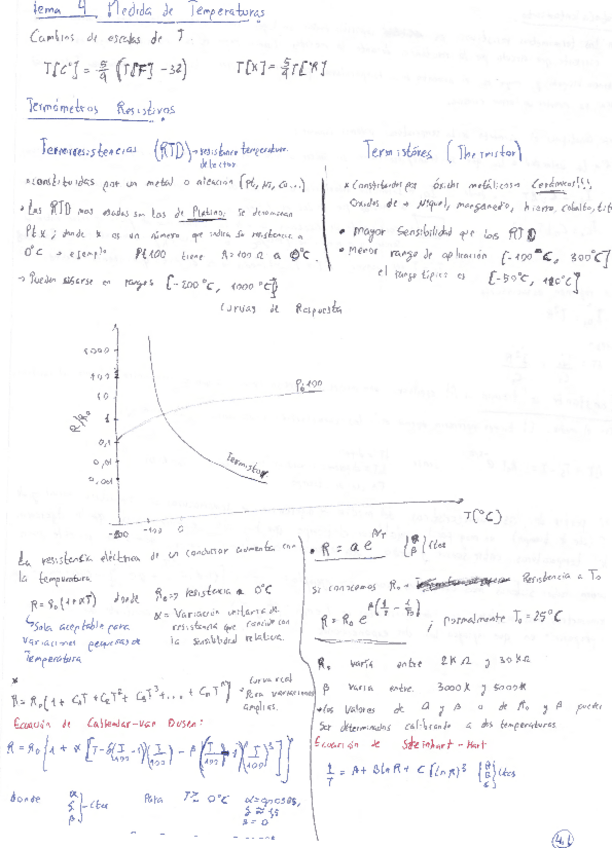 Tema 4 Medida de Temperaturas
Cambios de escalas de T.
T[C°] = 5/9 (T[F] - 32) T[K] = 5/9 T[°R]
Termómetros Resistivos
Termoresistencias (RTD) → resistance temperature detector
• constituidas por un metal o aleación (Pt, Ni, Cu...)
• Las RTD mas usadas son las de Platino; se denominan
Pt x; donde x es un número que indica su resistencia a
0°C → ejemplo Pt100 tiene R=100 Ω a 0°C.
→ Pueden usarse en rangos [-200°C, 1000°C]
Termistores (Thermistor)
* Constituidos por óxidos metálicos = Cerámicos!!!,
óxidos de Niquel, manganedo, hierro, cobalto,
• mayor Sensibilidad que los RTD
• Menos rango de aplicación [-100°C, 300°C]
el rango típico es [-50°C, 120°C]
Curvas de Respuesta
R/R₀
1000
100
10
1
0,1
0,01
0,001
Pt 100
Termistor
-200 -100 0
T(°C)
La resistencia eléctrica de un conductor aumenta con
la temperatura
R = R₀(1+αT) donde R₀ => resistencia a 0°C
α = Variación unitaria de
resistencia que coincide con
la sensibilidad relativa.
↳ Sola aceptable para
variaciones pequeñas de
Temperatura
*
R = R₀(1 + C₁T + C₂T² + C₃T³ + ... + CₙTⁿ) curva real
Para variaciones
amplias.
Ecuación de Callendar-Van Dusen:
donde α δ β }- ctes Para T ≥ 0°C
β = 0
• R = a e^(β/T) {a β} ctes
Si conocemos R₀ = Resistencia a T₀
R = R₀ e^(β(1/T - 1/T₀)) ; normalmente T₀ = 25°C
R₀ varía entre 2KΩ y 30KΩ
β varia entre 3000K y 5000K
• Los valores de a y β o de R₀ y β pueden
ser determinados calibrando a dos temperaturas
Ecuación de Steinhart-Hart
1/T = A + B ln R + C (ln R)³ {A B C} ctes
4.1